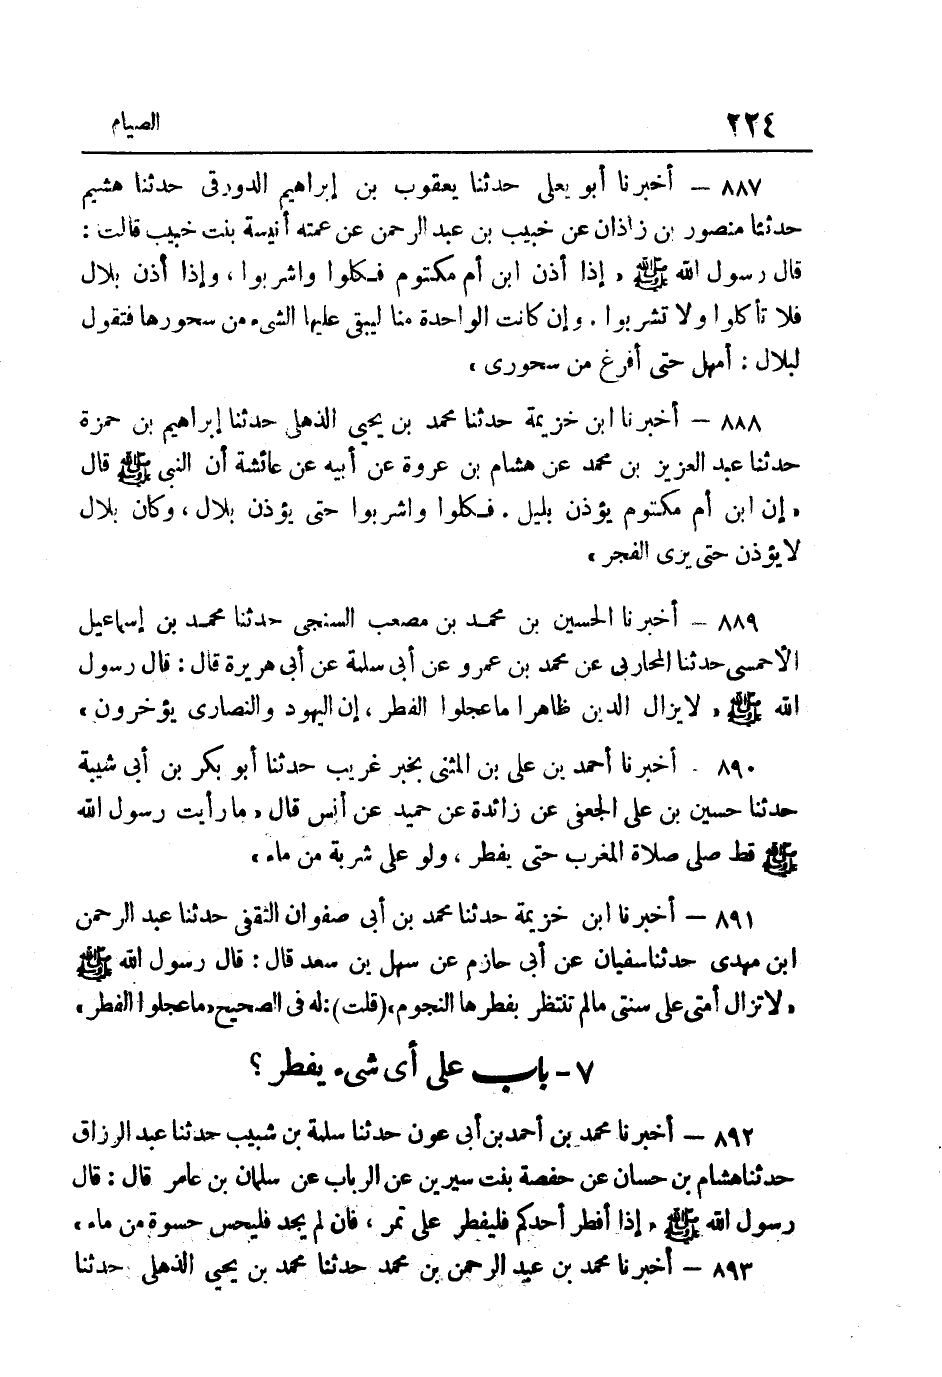 ٢٢٤ الصيام
٨٨٧ — أخبرنا أبو يعلى حدثنا يعقوب بن إبراهيم الدورقى حدثنا هشيم
حدثنا منصور بن زاذان عن خبيب بن عبد الرحمن عن عمته أنيسة بنت خبيب قالت :
قال رسول الله ﷺ « إذا أذن ابن أم مكتوم فكلوا واشربوا ، وإذا أذن بلال
فلا تأكلوا ولا تشربوا . وإن كانت الواحدة منا ليبقى عليها الشىء من سحورها فتقول
لبلال : أمهل حتى أفرغ من سحورى »
٨٨٨ — أخبرنا ابن خزيمة حدثنا محمد بن يحيى الذهلى حدثنا إبراهيم بن حمزة
حدثنا عبد العزيز بن محمد عن هشام بن عروة عن أبيه عن عائشة أن النبى ﷺ قال
« إن ابن أم مكتوم يؤذن بليل . فكلوا واشربوا حتى يؤذن بلال ، وكان بلال
لا يؤذن حتى يرى الفجر »
٨٨٩ — أخبرنا الحسين بن محمد بن مصعب السنجى حدثنا محمد بن إسماعيل
الأحمسى حدثنا المحاربى عن محمد بن عمرو عن أبى سلمة عن أبى هريرة قال : قال رسول
الله ﷺ « لا يزال الدين ظاهرا ما عجلوا الفطر ، إن اليهود والنصارى يؤخرون »
٨٩٠ - أخبرنا أحمد بن على بن المثنى بخبر غريب حدثنا أبو بكر بن أبى شيبة
حدثنا حسين بن على الجعفى عن زائدة عن حميد عن أنس قال « ما رأيت رسول الله
ﷺ قط صلى صلاة المغرب حتى يفطر ، ولو على شربة من ماء »
٨٩١ — أخبرنا ابن خزيمة حدثنا محمد بن أبى صفوان الثقفى حدثنا عبد الرحمن
ابن مهدى حدثنا سفيان عن أبى حازم عن سهل بن سعد قال : قال رسول الله ﷺ
« لا تزال أمتى على سنتى ما لم تنتظر بفطرها النجوم » (قلت) : له فى الصحيح « ما عجلوا الفطر »
٧ - باب على أى شىء يفطر ؟
٨٩٢ — أخبرنا محمد بن أحمد بن أبى عون حدثنا سلمة بن شبيب حدثنا عبد الرزاق
حدثنا هشام بن حسان عن حفصة بنت سيرين عن الرباب عن سلمان بن عامر قال : قال
رسول الله ﷺ « إذا أفطر أحدكم فليفطر على تمر ، فان لم يجد فليحس حسوة من ماء »
٨٩٣ — أخبرنا محمد بن عبد الرحمن بن محمد حدثنا محمد بن يحيى الذهلى حدثنا